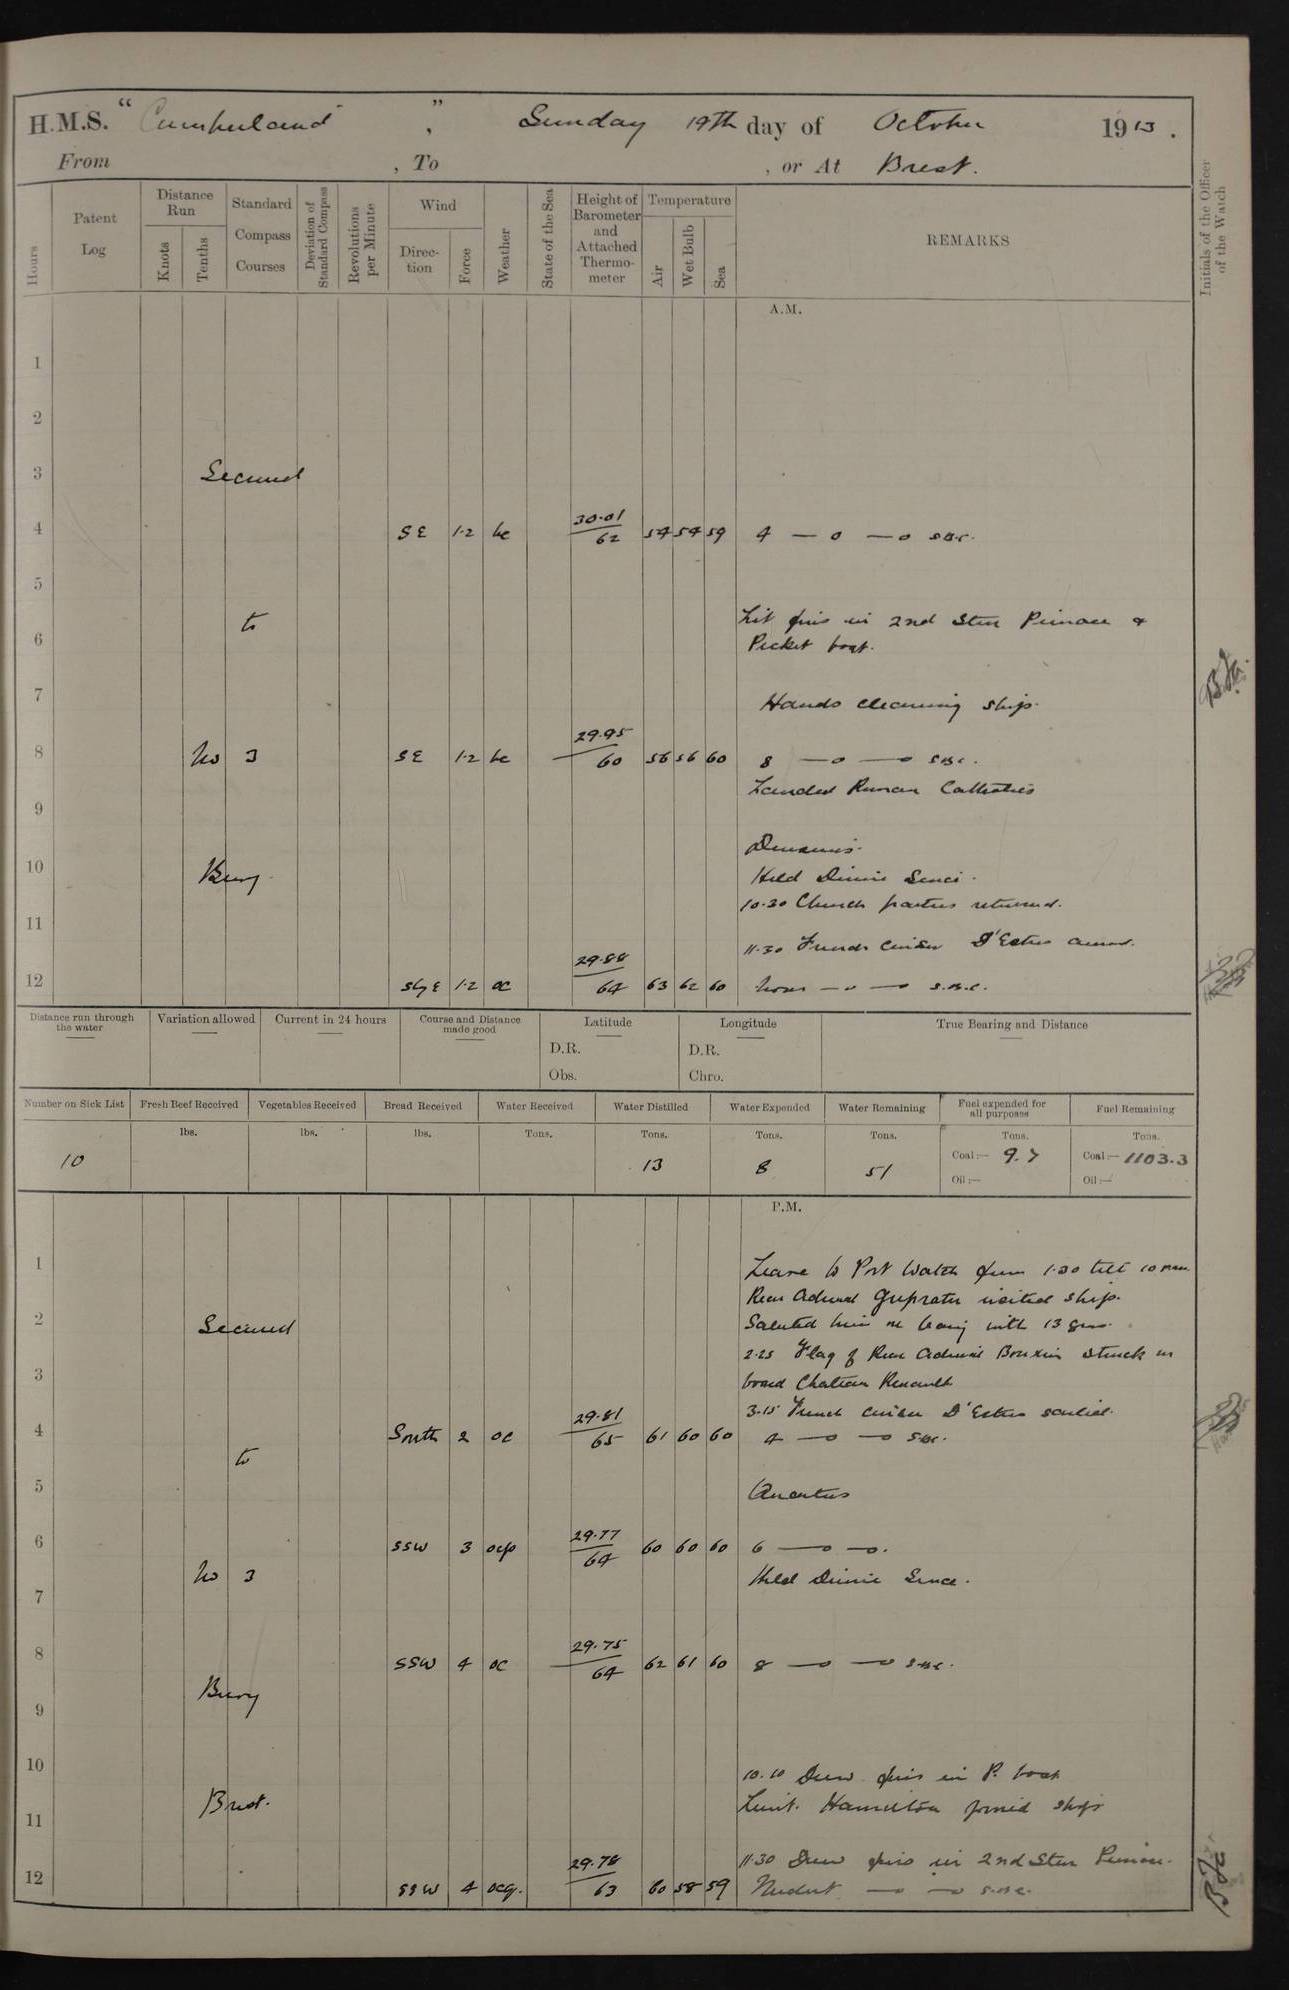 H.M.S. "Cumberland", Sunday 19th day of October 1913.
From , To , or At Brest.
Hours
Patent Log
Distance Run
Knots
Tenths
Standard Compass Courses
Deviation of Standard Compass
Revolutions per Minute
Wind
Direction
Force
Weather
State of the Sea
Height of Barometer and Attached Thermometer
Temperature
Air
Wet Bulb
Sea
REMARKS
Initials of the Officer of the Watch
A.M.
1
2
3 Secured
4 SE 1·2 bc 30·01/62 54 54 59 4 — o — o S.B.C.
5
to Lit fires in 2nd Stm Pinnace &
6 Picket boat.
7 Hands cleaning ship.
8 No 3 SE 1·2 bc 29·95/60 56 56 60 8 — o — o S.B.C.
Landed Roman Catholics
9
Divisions.
10 Buoy Held Divine Service.
10·30 Church parties returned.
11
11·30 French cruiser D'Estres arrived.
12 SbyE 1·2 oc 29·88/64 63 62 60 Noon — o — S.B.C.
Distance run through the water
Variation allowed
Current in 24 hours
Course and Distance made good
Latitude
D.R.
Obs.
Longitude
D.R.
Chro.
True Bearing and Distance
Number on Sick List
Fresh Beef Received
Vegetables Received
Bread Received
Water Received
Water Distilled
Water Expended
Water Remaining
Fuel expended for all purposes
Fuel Remaining
lbs. lbs. lbs. Tons. Tons. Tons. Tons. Tons. Tons.
10 13 8 51 Coal:— 9.7 Coal:— 1103.3
Oil:— Oil:—
P.M.
1 Leave to Port Watch from 1·30 till 10
Rear Admiral Guprate visited ship.
2 Secured Saluted him on leaving with 13 guns.
2·25 Flag of Rear Admiral struck on
3 board Chateau Renault
3·15 French cruiser D'Estres sailed.
4 South 2 oc 29·81/65 61 60 60 4 — o — o S.B.C.
to
5 Quarters
6 SSW 3 ocp 29·77/64 60 60 60 6 — o — o.
No 3 Held Divine Service.
7
8 SSW 4 oc 29·75/64 62 61 60 8 — o — o S.B.C.
Buoy
9
10 10·10 Drew fires in P. boat
Brest. Lieut. Hamilton joined ship
11
11·30 Drew fires in 2nd Stm Pinnace.
12 SSW 4 ocq. 29·78/63 60 58 59 Midnt — o — o S.B.C.